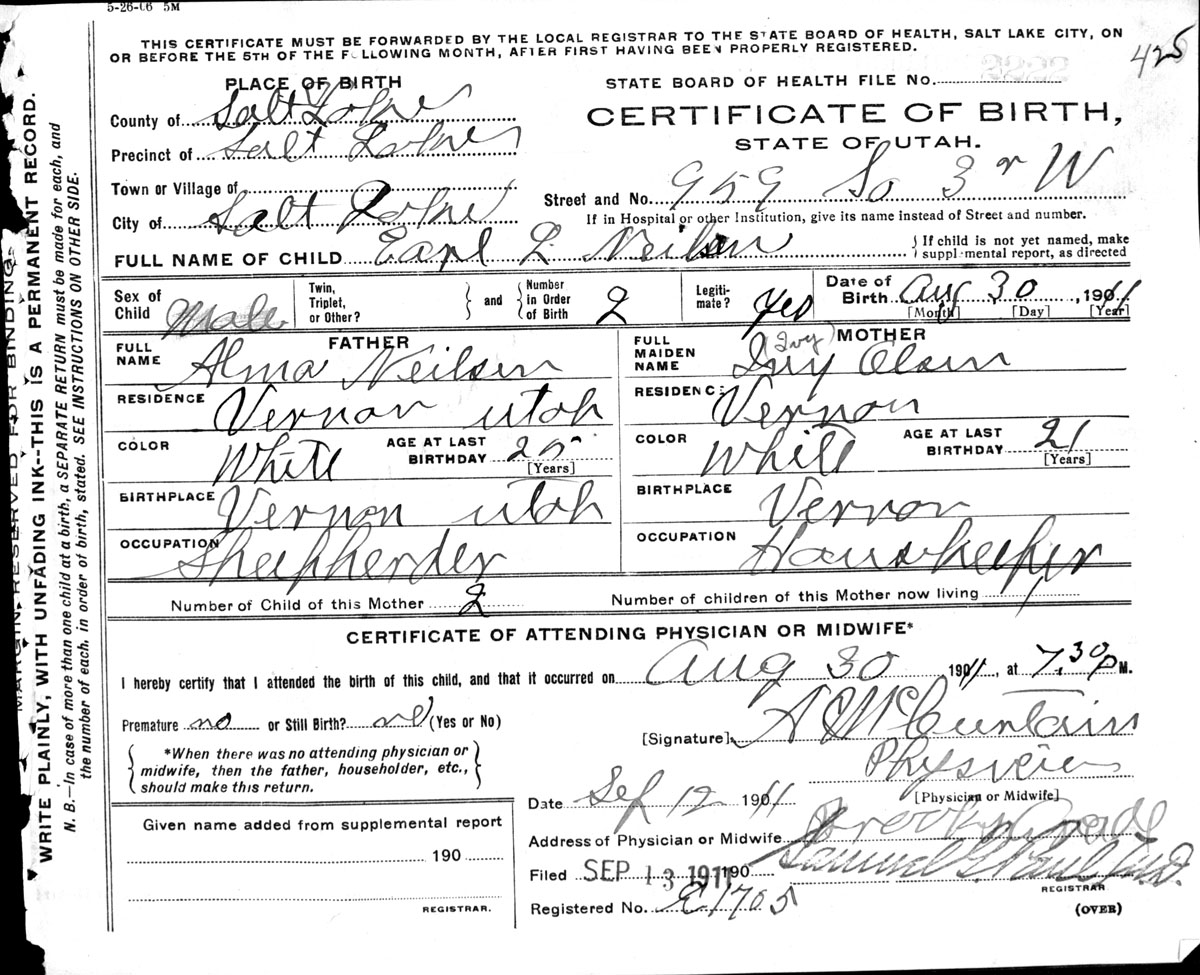 5-26-06 5M
THIS CERTIFICATE MUST BE FORWARDED BY THE LOCAL REGISTRAR TO THE STATE BOARD OF HEALTH, SALT LAKE CITY, ON
OR BEFORE THE 5TH OF THE FOLLOWING MONTH, AFTER FIRST HAVING BEEN PROPERLY REGISTERED.
425
PLACE OF BIRTH
STATE BOARD OF HEALTH FILE No.
County of Salt Lake
CERTIFICATE OF BIRTH,
Precinct of Salt Lake
STATE OF UTAH.
Town or Village of
Street and No. 959 So 3r W
City of Salt Lake
If in Hospital or other Institution, give its name instead of Street and number.
FULL NAME OF CHILD Earl L Neilsen
{ If child is not yet named, make
supplemental report, as directed
Sex of Child Male
Twin, Triplet, or Other? } and { Number in Order of Birth 2
Legitimate? Yes
Date of Birth Aug 30, 1911
[Month] [Day] [Year]
FATHER
FULL NAME Alma Neilsen
RESIDENCE Vernon Utah
COLOR White
AGE AT LAST BIRTHDAY 25
[Years]
BIRTHPLACE Vernon Utah
OCCUPATION Sheepherder
MOTHER
(Ivy)
FULL MAIDEN NAME Ivy Olsen
RESIDENCE Vernon
COLOR White
AGE AT LAST BIRTHDAY 21
[Years]
BIRTHPLACE Vernon
OCCUPATION Housekeeper
Number of Child of this Mother 2
Number of children of this Mother now living
CERTIFICATE OF ATTENDING PHYSICIAN OR MIDWIFE*
I hereby certify that I attended the birth of this child, and that it occurred on Aug 30 1911, at 7.30 P M.
Premature no or Still Birth? no (Yes or No)
[Signature]
*When there was no attending physician or
midwife, then the father, householder, etc.,
should make this return.
Physician
[Physician or Midwife]
Date Sep 12 1911
Given name added from supplemental report
190
REGISTRAR.
Address of Physician or Midwife
Filed SEP 13 1911 190
Samuel G. Paul M.D.
REGISTRAR
Registered No. E1705
(OVER)
MARGIN RESERVED FOR BINDING.
WRITE PLAINLY, WITH UNFADING INK--THIS IS A PERMANENT RECORD.
N. B.—In case of more than one child at a birth, a SEPARATE RETURN must be made for each, and
the number of each, in order of birth, stated. SEE INSTRUCTIONS ON OTHER SIDE.